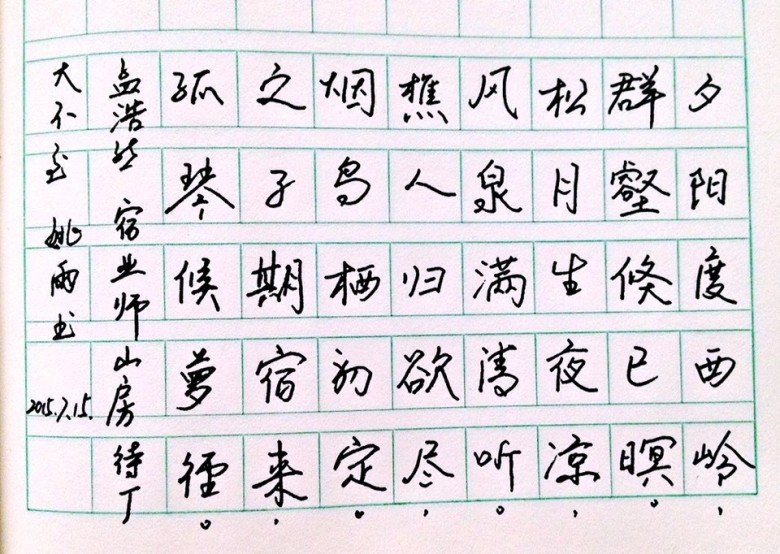 夕阳度西岭，
群壑倏已暝。
松月生夜凉，
风泉满清听。
樵人归欲尽，
烟鸟栖初定。
之子期宿来，
孤琴候萝径。
孟浩然 宿业师山房待丁
大不至 姚雨书 2015.7.15.